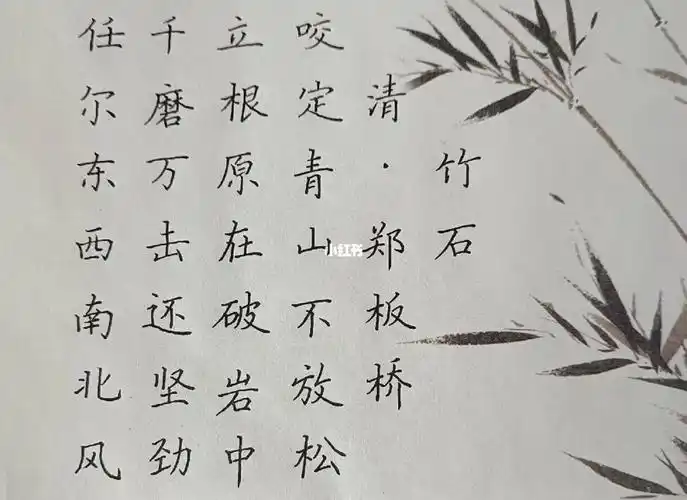 竹石
清·郑板桥
咬定青山不放松
立根原在破岩中
千磨万击还坚劲
任尔东西南北风
小红书